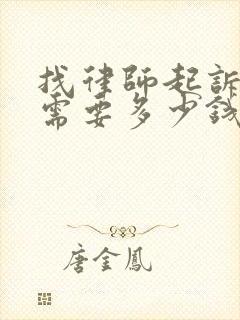 找律師起訴
需要多少錢
唐金鳳